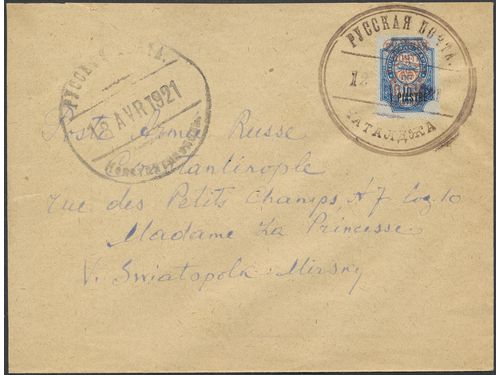 РУССКАЯ ПОЧТА.
12 AVR 1921
РУССКАЯ ПОЧТА.
12
ЧАТАЛДЖА
Poste Armée Russe
Constantinople
rue des Petits Champs, № 7 Log. 10
Madame La Princesse
V. Swiatopolk-Mirsky